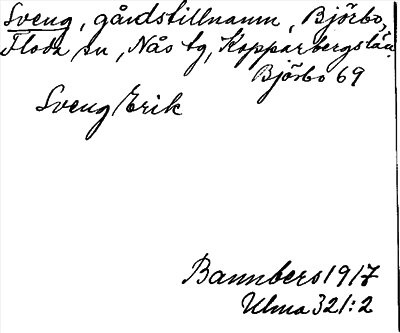 Sveng, gårdstillnamn, Björbo,
Floda sn, Nås tg, Kopparbergslän.
Björbo 69
Sveng Erik
Bannbers 1917
Ulma 321:2